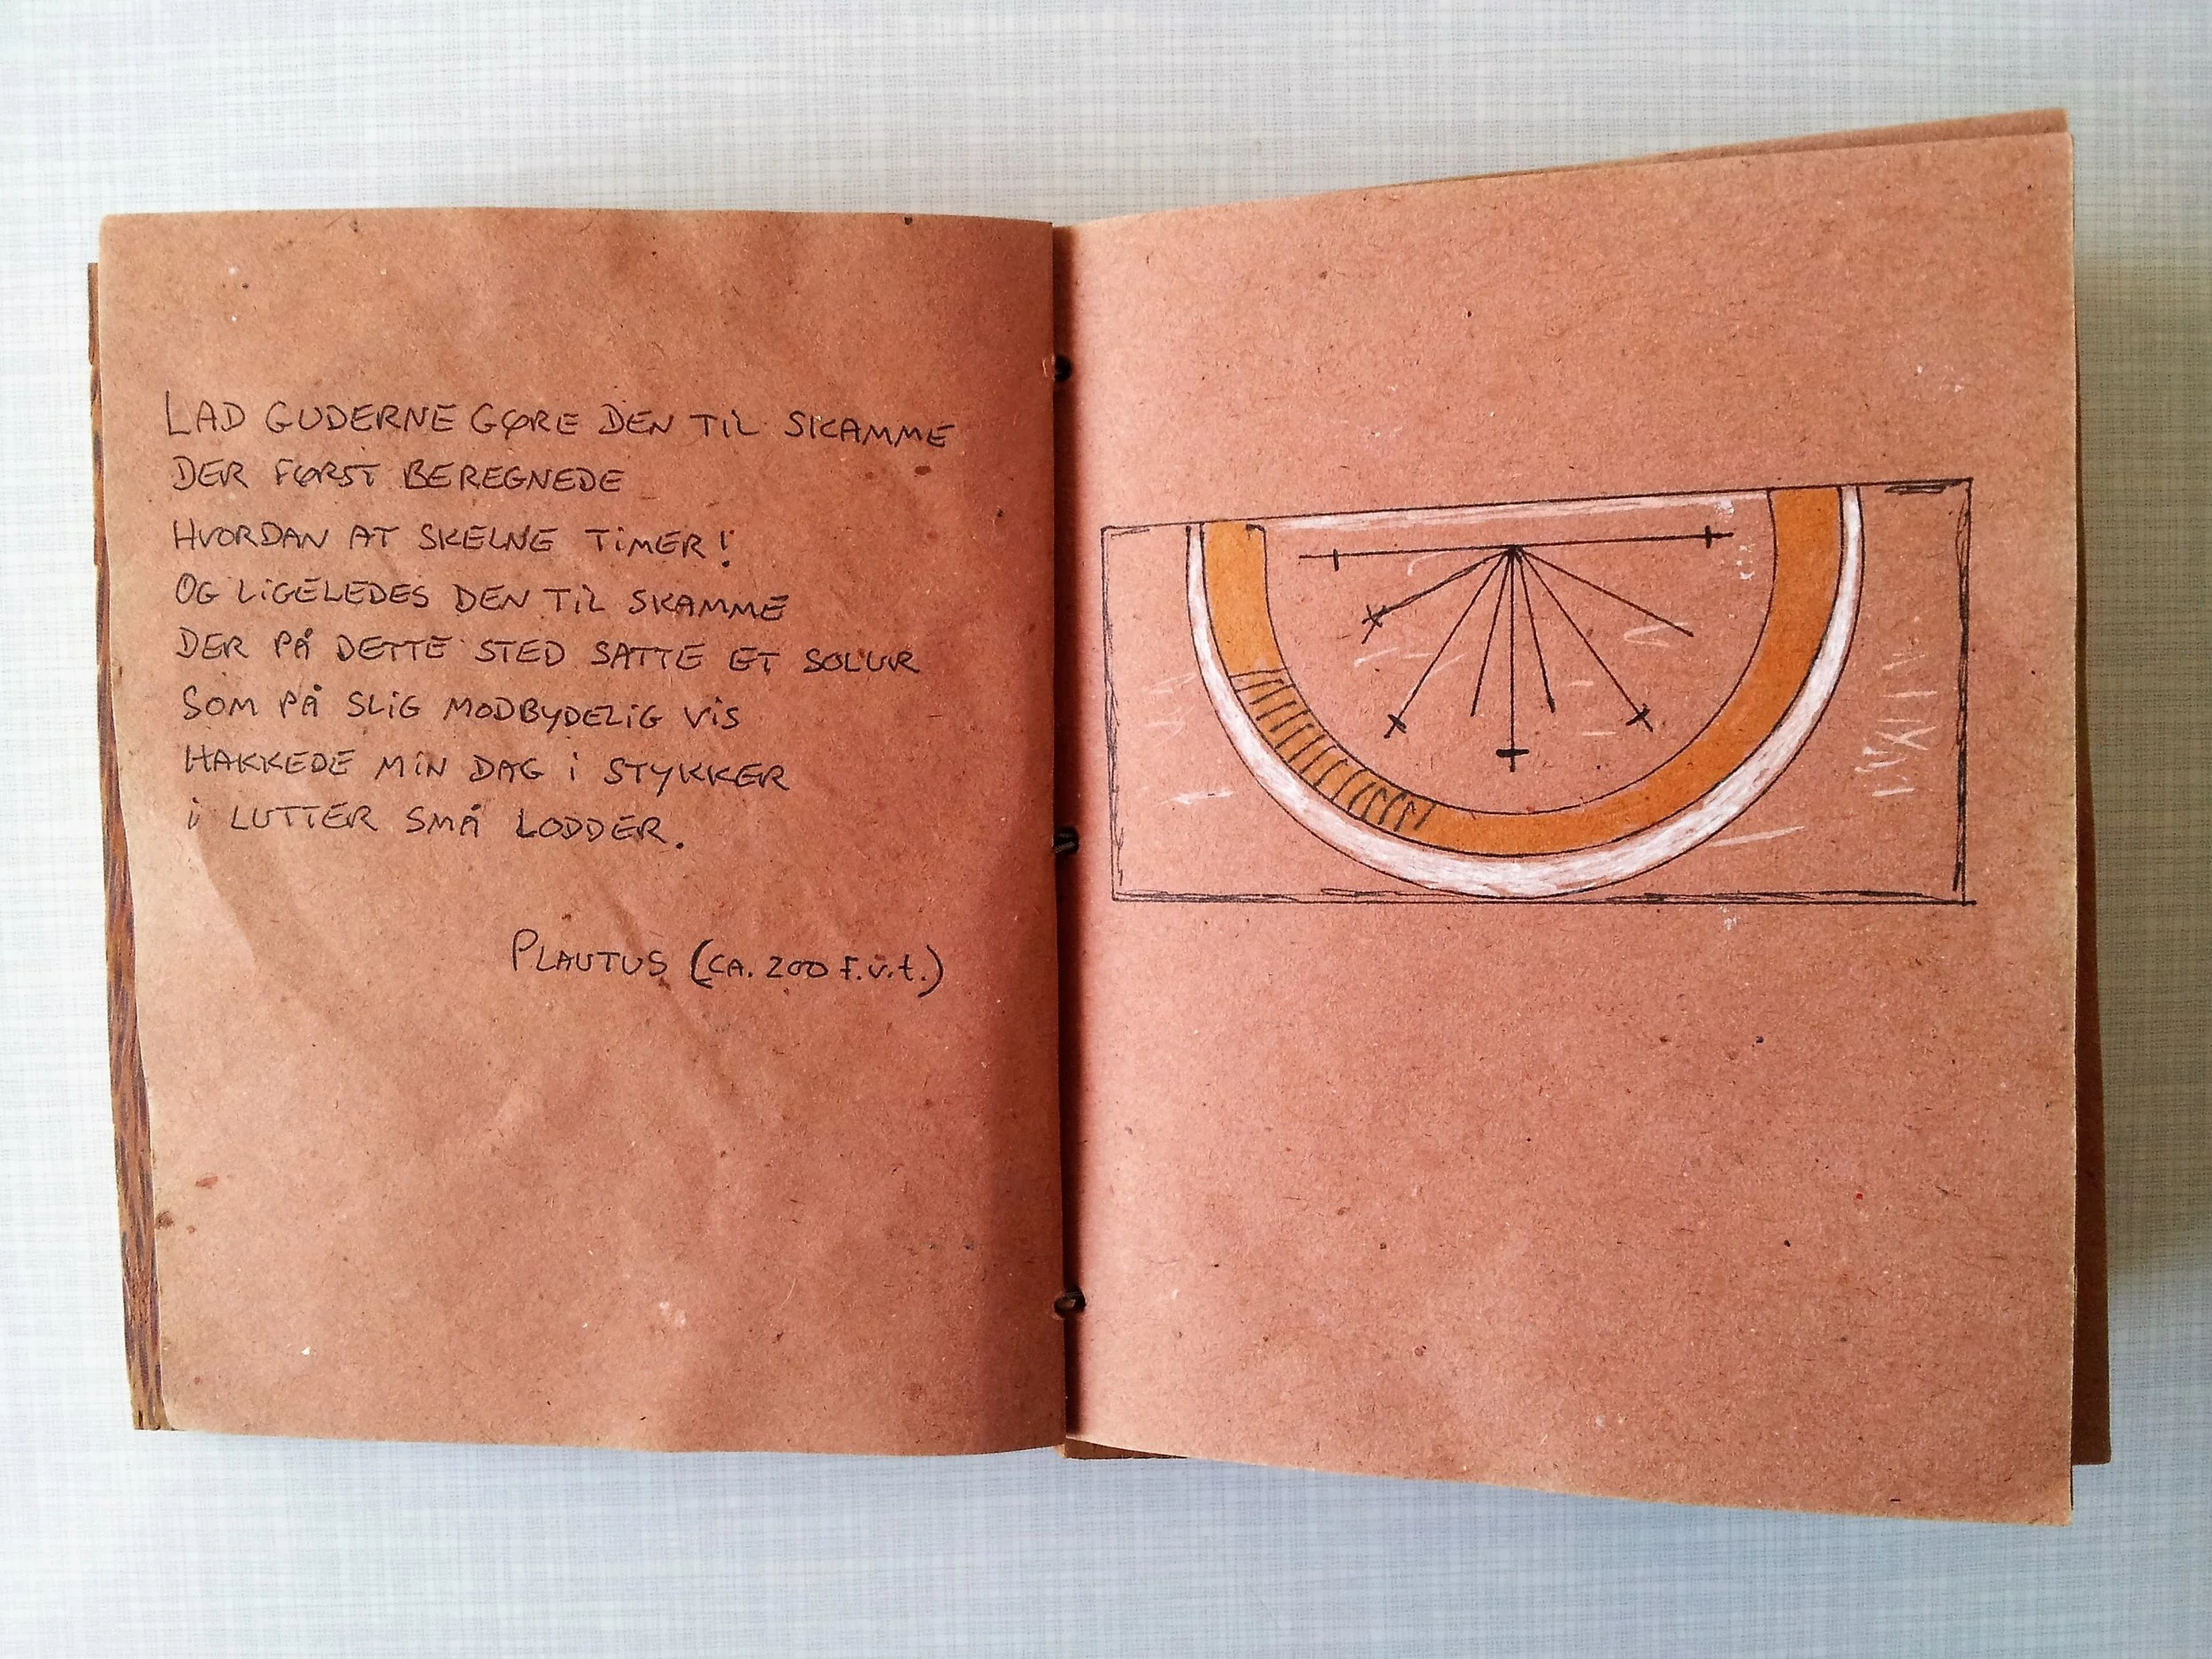 LAD GUDERNE GØRE DEN TIL SKAMME
DER FØRST BEREGNEDE
HVORDAN AT SKELNE TIMER!
OG LIGELEDES DEN TIL SKAMME
DER PÅ DETTE STED SATTE ET SOLUR
SOM PÅ SLIG MODBYDELIG VIS
HAKKEDE MIN DAG I STYKKER
I LUTTER SMÅ LODDER.
PLAUTUS (CA. 200 F.v.t.)